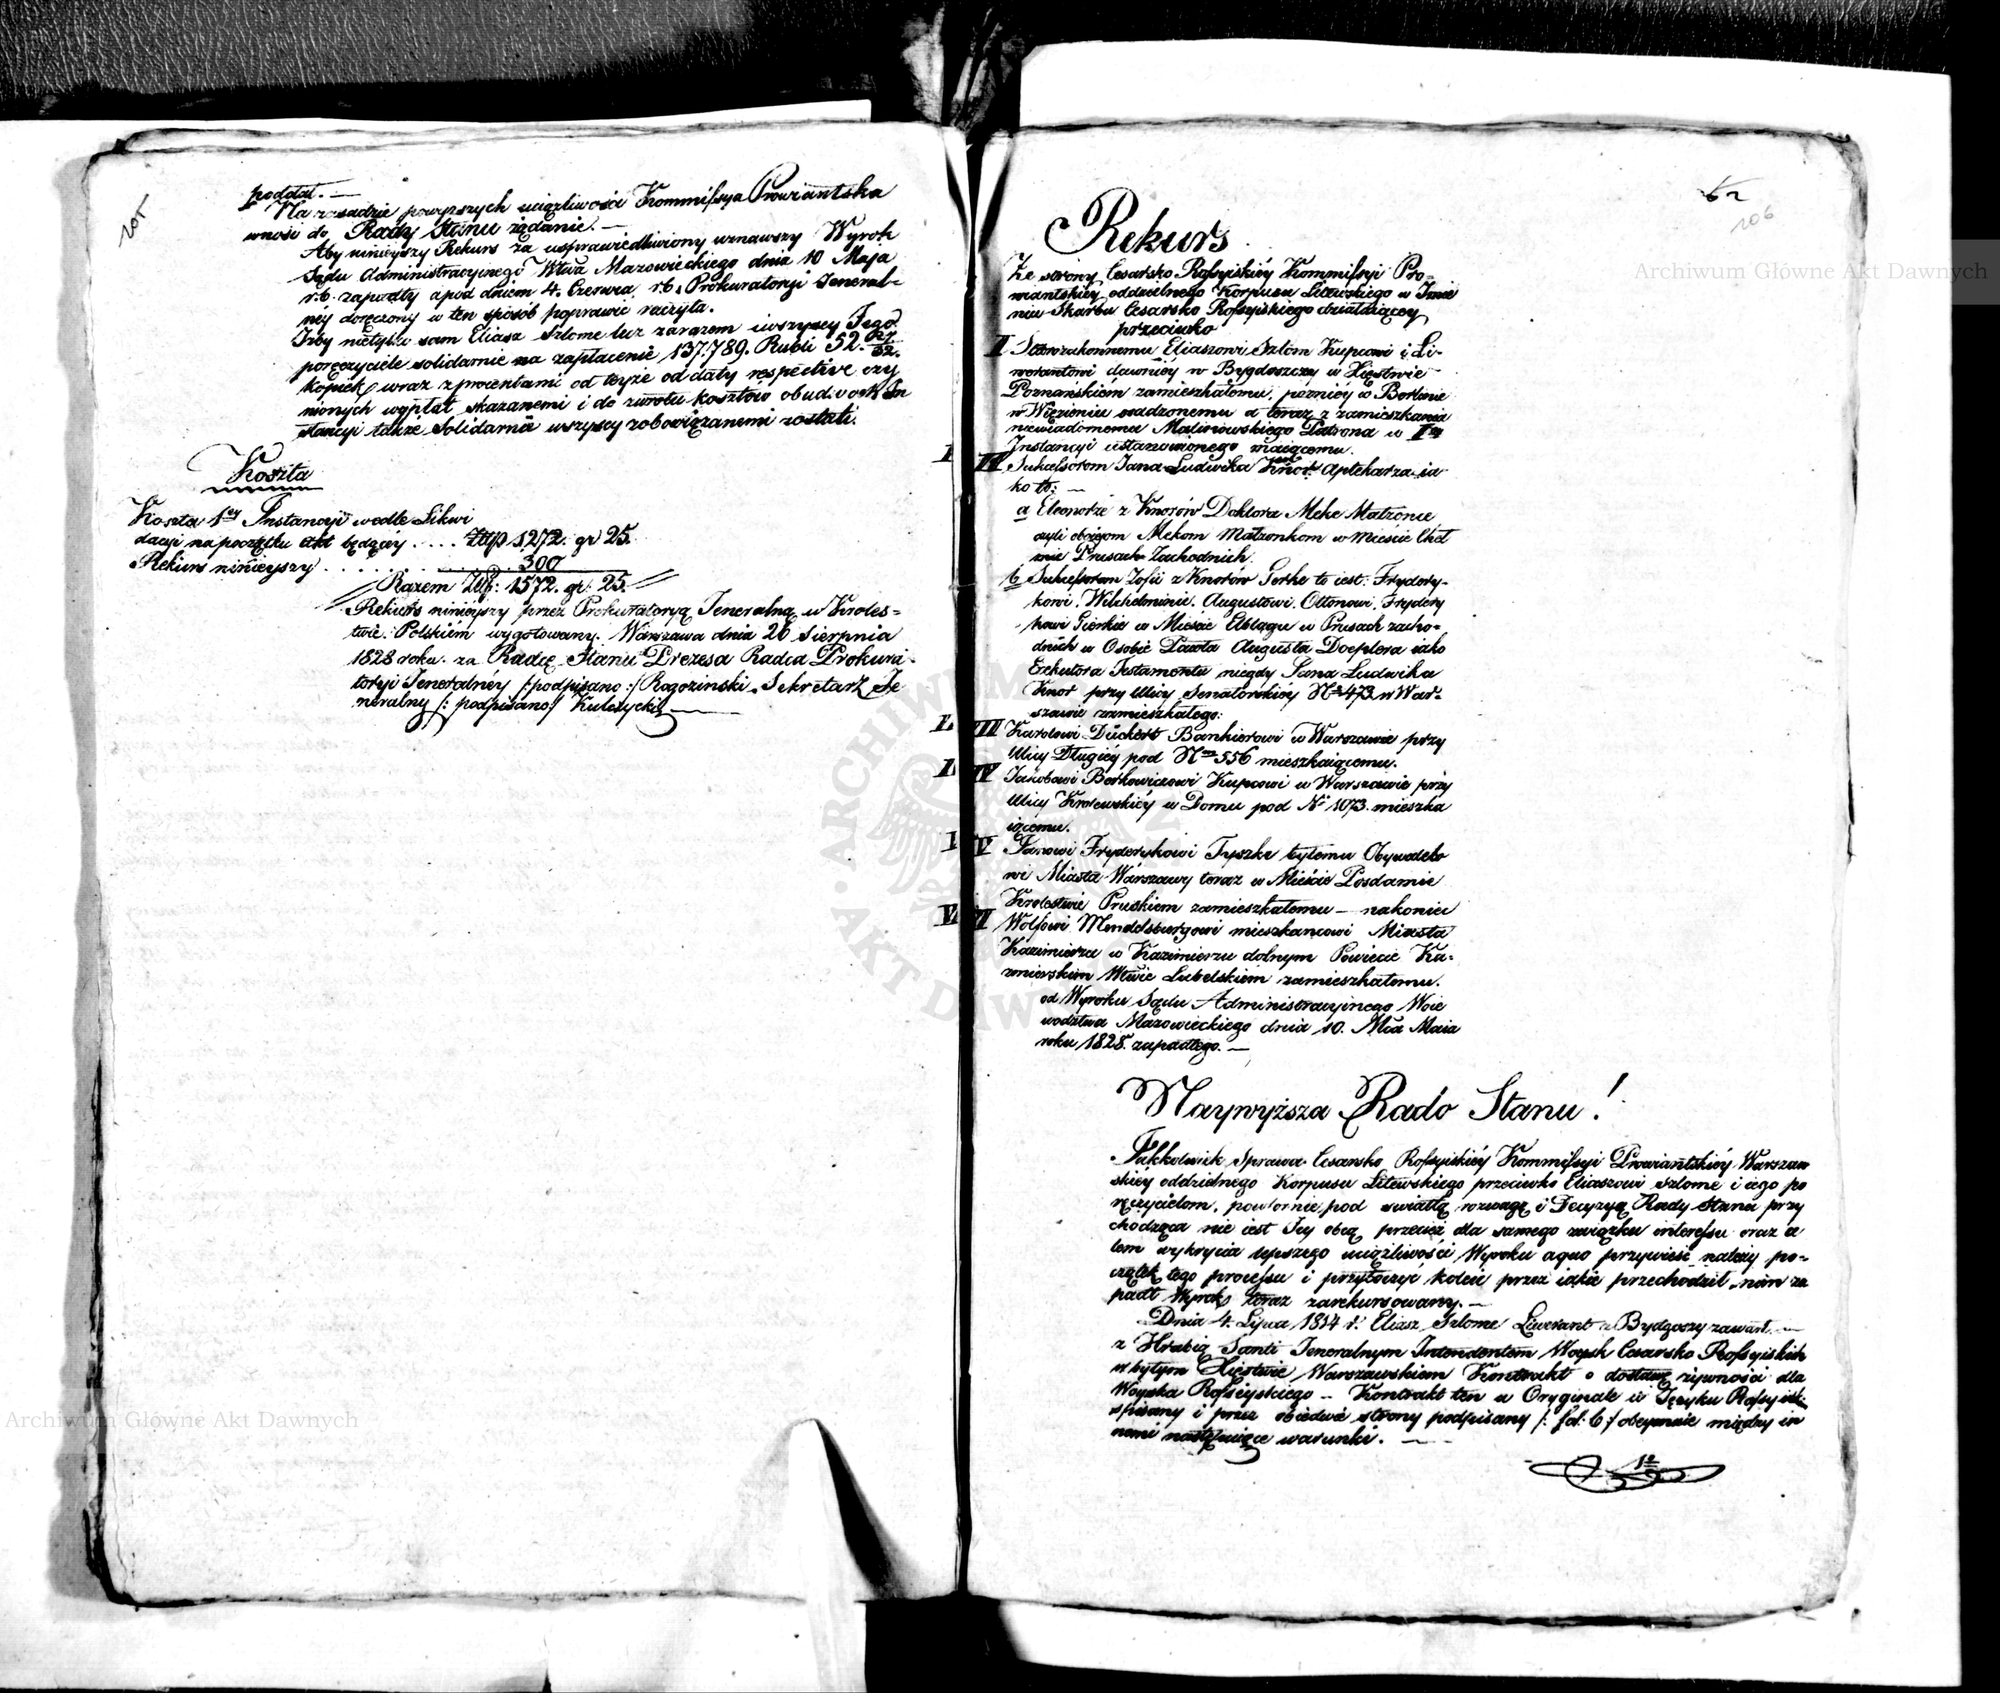 205
poddał. —
Na zasadzie powyższych uciążliwości Kommissya Prowiantska
wnosi do Rady Stanu żądanie. —
Aby ninieyszy Rekurs za usprawiedliwiony uznawszy Wyrok
Sądu Administracyinego Wtwa Mazowieckiego dnia 10 Maja
r.b. zapadły a pod dniem 4. Czerwca r.b. Prokuratoryi Jeneral-
ney doręczony w ten sposób poprawić raczyła.
Iżby nietylko sam Eliasz Szlome lecz zarazem i wszyscy Jego
poręczyciele solidarnie na zapłacenie 137.789. Rubli 52.
kopiek wraz z procentami od teyże od daty respective czy
nionych wypłat skazanemi i do zwrotu kosztów obudwoch In
stancyi także Solidarnie wszyscy zobowiązanemi zostali.
Koszta
Koszta 1ey Instancyi wedle Likwi
dacyi na początku akt będącey .... Złłp 1272. gr 25.
Rekurs ninieyszy .......... 300
Razem Złłp: 1572. gr. 25.
Rekurs ninieyszy przez Prokuratoryą Jeneralną w Króles=
twie Polskiém wygotowany. Warszawa dnia 26 Sierpnia
1828 roku. za Radcę Stanu Prezesa Radca Prokura
toryi Jeneralnéy /:podpisano:/ Rogoziński. Sekretarz Je
neralny /:podpisano:/ Kulczycki
62
206
Rekurs
Ze strony Cesarsko Rossyiskiéy Kommissyi Pro=
wiantskiéy oddzielnego Korpusu Litewskiego w Imie
niu Skarbu Cesarsko Rossyiskiego działaiącey
przeciwko
I Starozakonnemu Eliaszowi Szlom Kupcowi i Li-
werantowi dawniéy w Bydgoszczy w Xięstwie
Poznańskiém zamieszkałemu, poźniéy w Berlinie
w Więzieniu osadzonemu a teraz z zamieszkania
niewiadomemu Malinowskiego Patrona w Iey
Instancyi ustanowionego maiącemu.
II Sukcessorom Jana Ludwika Knor Aptekarza ia-
ko to: —
a Eleonorze z Knorów Doktora Meke Małżonce
czyli oboygom Mekom Małżonkom w Mieście Cheł
mnie Prusach Zachodnich.
b Sukcessorom Zofii z Knorów Gerke to iest: Frydery-
kowi, Wilhelminie, Augustowi, Ottonowi, Frydery
kowi Gierkie w Mieście Elblągu w Prusach zacho-
dnich w Osobie Pawła Augusta Doeplera iako
Exekutora Testamentu niegdy Jana Ludwika
Knor przy Ulicy Senatorskiéy No 473 w War-
szawie zamieszkałego:
III Karolowi Dückert Bankierowi w Warszawie przy
Ulicy Długiéy pod Nem 556 mieszkaiącemu.
IV Jakóbowi Berkowiczowi Kupcowi w Warszawie przy
Ulicy Królewskiéy w Domu pod No 1073. mieszka
iącemu.
V Janowi Fryderykowi Tyszke byłemu Obywatelo
wi Miasta Warszawy teraz w Mieście Posdamie
Królestwie Pruskiem zamieszkałemu — nakoniec
VI Wolfowi Mendelsburgowi mieszkańcowi Miasta
Kazimierza w Kazimierzu dolnym Powiecie Ka-
zmierskim Wtwie Lubelskiem zamieszkałemu.
od Wyroku Sądu Administracyinego Woie
wództwa Mazowieckiego dnia 10. Mca Maia
roku 1828. zapadłego. —
Naywyższa Rado Stanu!
Jakkolwiek Sprawa Cesarsko Rossyiskiéy Kommissyi Prowiantskiéy Warszaw
skiéy oddzielnego Korpusu Litewskiego przeciwko Eliaszowi Szlome i iego po
ręczycielom, powtórnie pod światłą rozwagę i Decyzyą Rady Stanu przy
chodząca nie iest Jey obcą przecież dla samego związku interessu oraz ce
lem wykrycia lepszego uciążliwości Wyroku aquo przywieść należy po-
czątek tego processu i przytoczyć koleie przez iakie przechodził, nim za
padł Wyrok teraz zarekursowany. —
Dnia 4. Lipca 1814 r. Eliasz Szlome Liwerant z Bydgoszy zawarł —
z Hrabią Santi Jeneralnym Intendentem Woysk Cesarsko Rossyiskich
w byłym Xięstwie Warszawskiem Kontrakt o dostawę żywności dla
Woyska Rossyiskiego — Kontrakt ten w Oryginale w Języku Rossyisk:
spisany i przez obiedwie strony podpisany /: fol: 6 :/ obeymuie między in
nemi następuiące warunki. —
1o
Archiwum Główne Akt Dawnych
Archiwum Główne Akt Dawnych